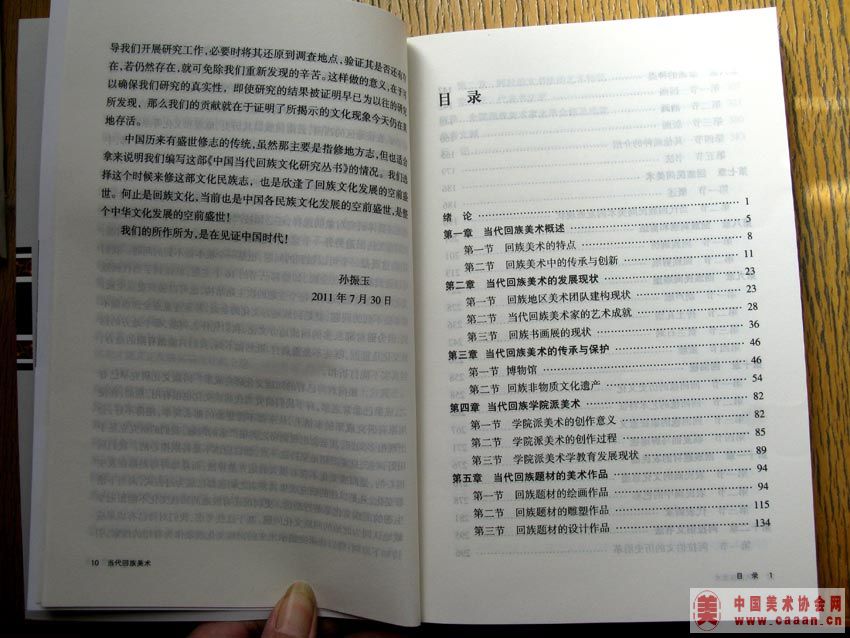 导我们开展研究工作,必要时将其还原到调查地点,验证其是否还有存
在,若仍然存在,就可免除我们重新发现的辛苦。这样做的意义,在于可
以确保我们研究的真实性,即使研究的结果被证明早已为以往的研究
所发现,那么我们的贡献就在于证明了所揭示的文化现象今天仍在原
地存活。
中国历来有盛世修志的传统,虽然那主要是指修地方志,但也适合
拿来说明我们编写这部《中国当代回族文化研究丛书》的情况。我们选
择这个时候来修这部文化民族志,也是欣逢了回族文化发展的空前盛
世。何止是回族文化,当前也是中国各民族文化发展的空前盛世,是整
个中华文化发展的空前盛世!
我们的所作所为,是在见证中国时代!
孙振玉
2011年7月30日
10 当代回族美术
目录
绪 论 1
第一章 当代回族美术概述 5
第一节 回族美术的特点 8
第二节 回族美术中的传承与创新 11
第二章 当代回族美术的发展现状 23
第一节 回族地区美术团队建构现状 23
第二节 当代回族美术家的艺术成就 28
第三节 回族书画展的现状 36
第三章 当代回族美术的传承与保护 46
第一节 博物馆 46
第二节 回族非物质文化遗产 54
第四章 当代回族学院派美术 82
第一节 学院派美术的创作意义 82
第二节 学院派美术的创作过程 85
第三节 学院派美术学教育发展现状 89
第五章 当代回族题材的美术作品 94
第一节 回族题材的绘画作品 94
第二节 回族题材的雕塑作品 115
第三节 回族题材的设计作品 134
目 录 1
美 中国美术协会网
www.caaan.cn